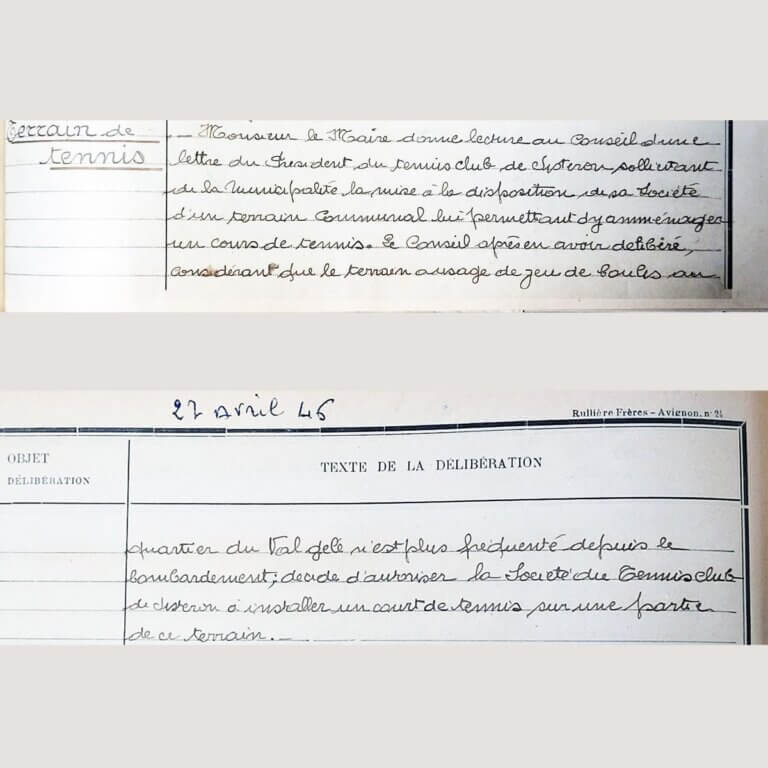 Terrain de
tennis
._ Monsieur le Maire donne lecture au Conseil d'une
lettre du President du tennis club de Sisteron sollicitant
de la Municipalité la mise à la disposition de sa Société
d'un terrain Communal lui permettant d'y amménager
un cours de tennis. Le Conseil après en avoir delibéré,
considérant que le terrain a usage de jeu de boules au
27 avril 46
Rullière Frères - Avignon. n° 24
OBJET
DÉLIBÉRATION
TEXTE DE LA DÉLIBÉRATION
quartier du Val gelé n'est plus fréquenté depuis le
bombardement; decide d'autoriser la Societé du Tennis club
de Sisteron à installer un court de tennis sur une partie
de ce terrain._